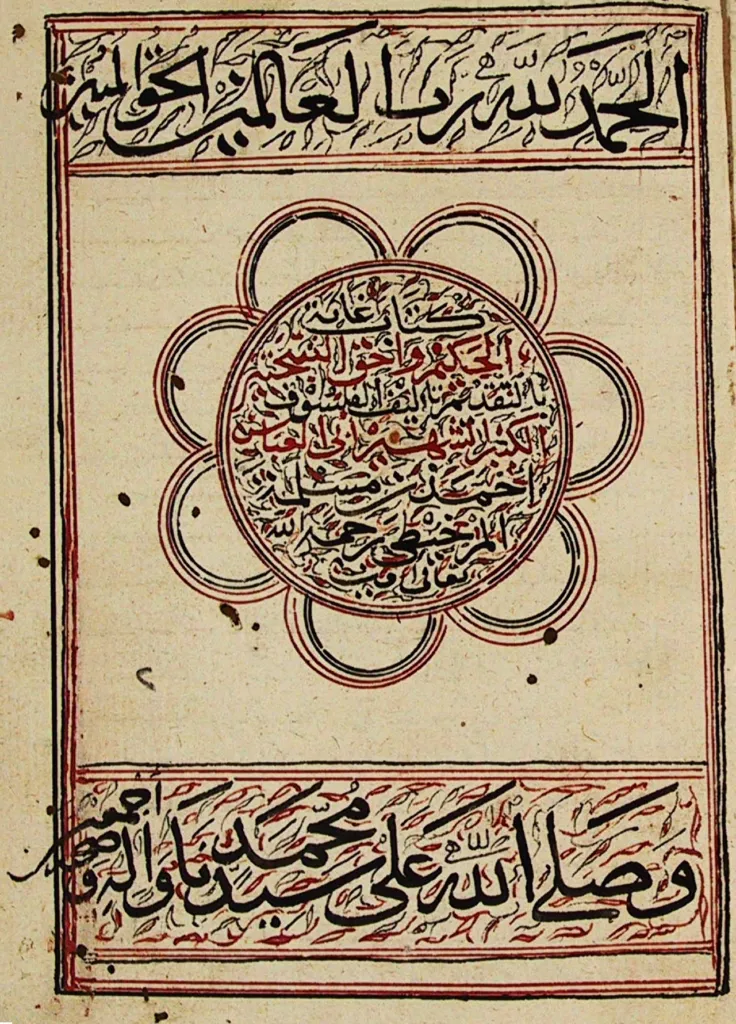 الحمد لله رب العالمين الحق المبين
كتاب غاية
الحكيم واحق النتيجتين
بالتقديم تاليف الفيلسوف
الكبير الشهير ابي العباس
احمد بن مسلمة
المرجيطي رحمه الله
تعالى امين
٢
وصلي الله على سيدنا محمد واله وصحبه أجمعين